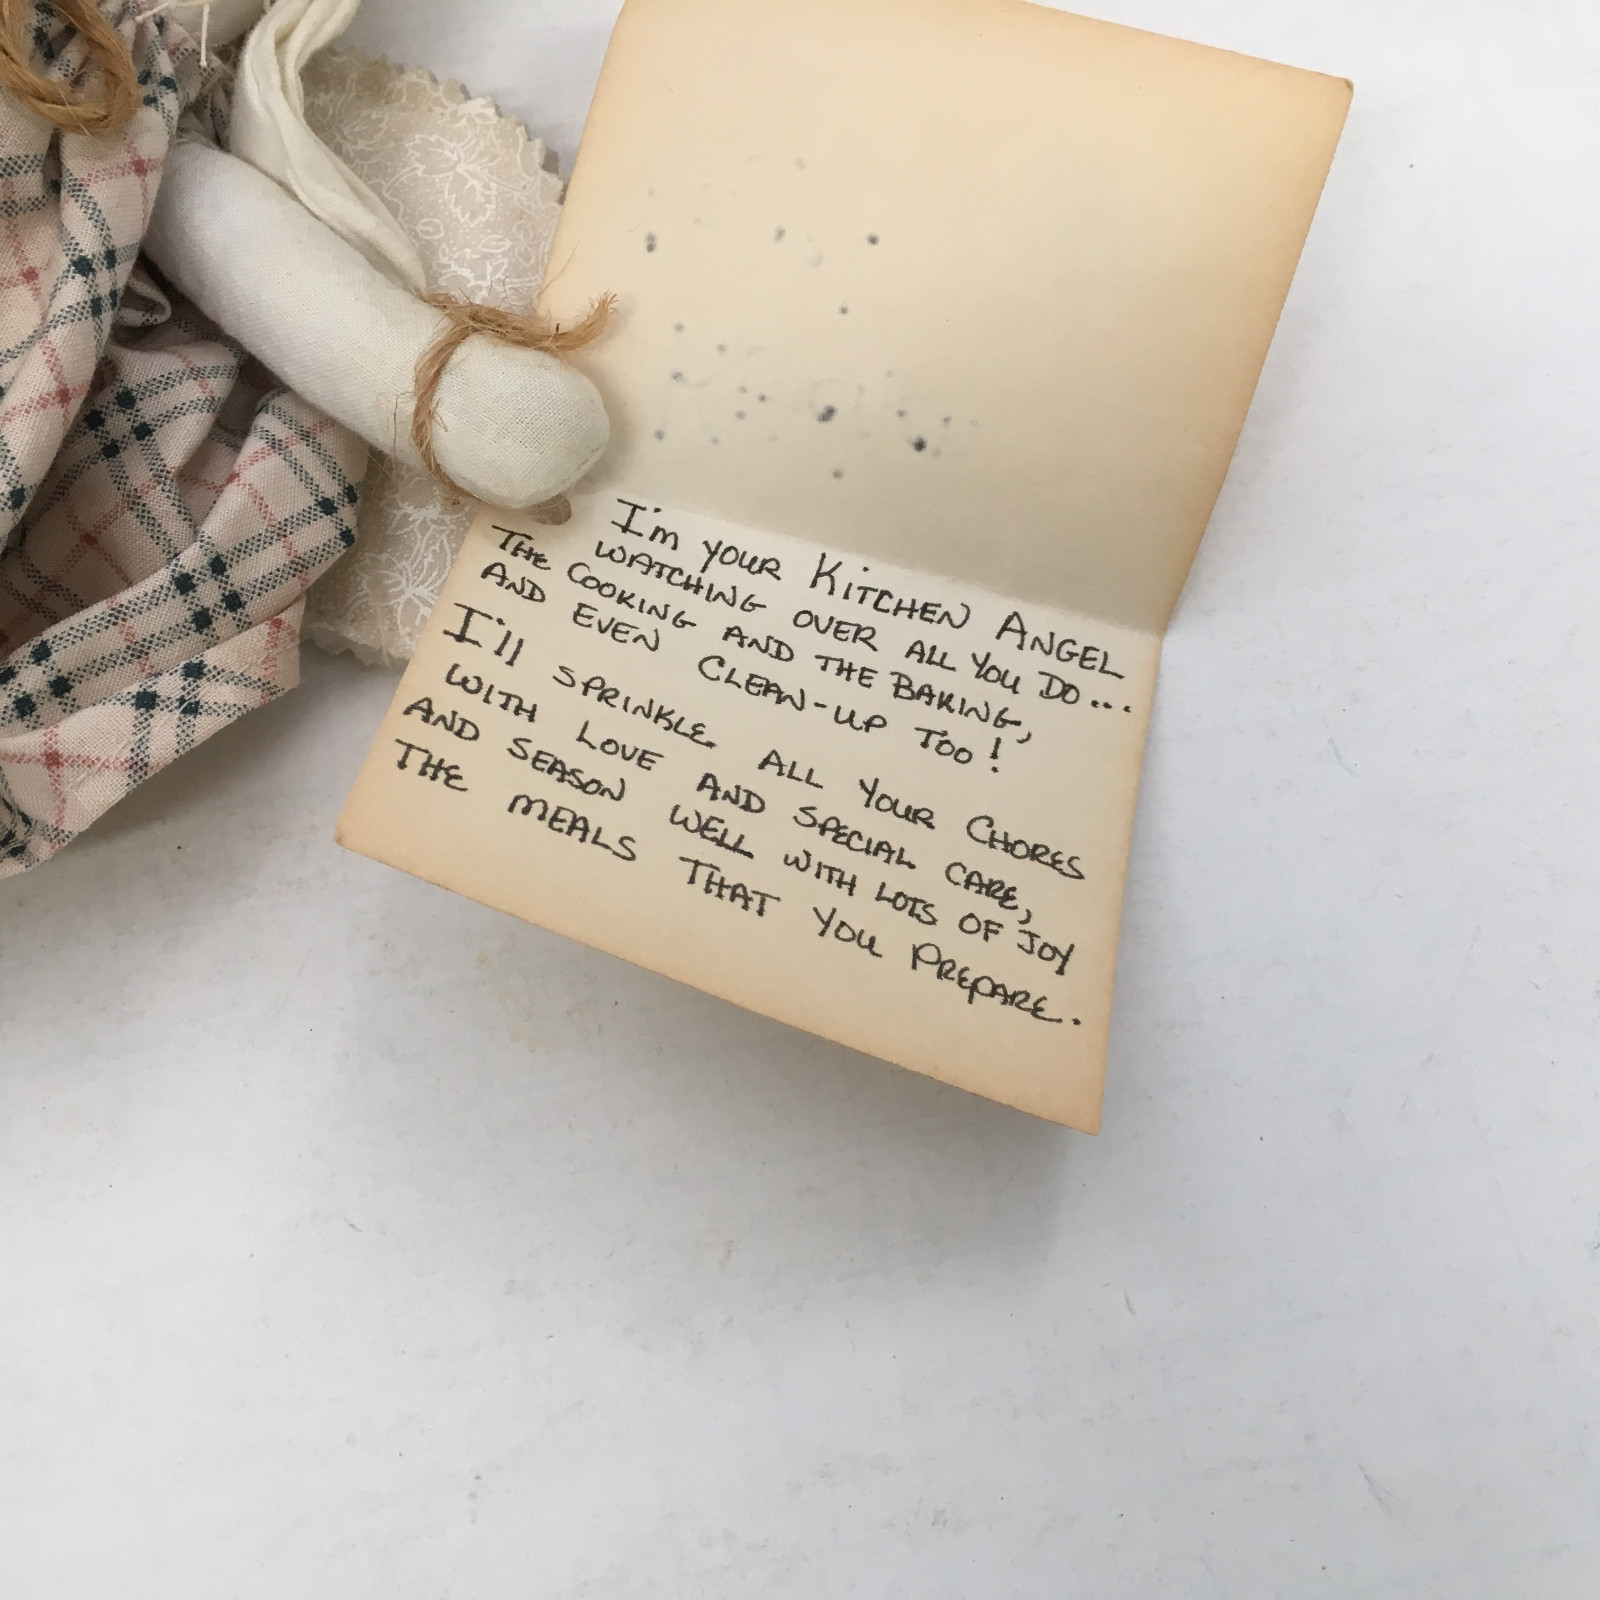 I'm YOUR KITCHEN ANGEL
WATCHING OVER ALL YOU DO...
THE COOKING AND THE BAKING,
AND EVEN CLEAN-UP TOO!
I'll SPRINKLE ALL YOUR CHORES
WITH LOVE AND SPECIAL CARE,
AND SEASON WELL WITH LOTS OF JOY
THE MEALS THAT YOU PREPARE.